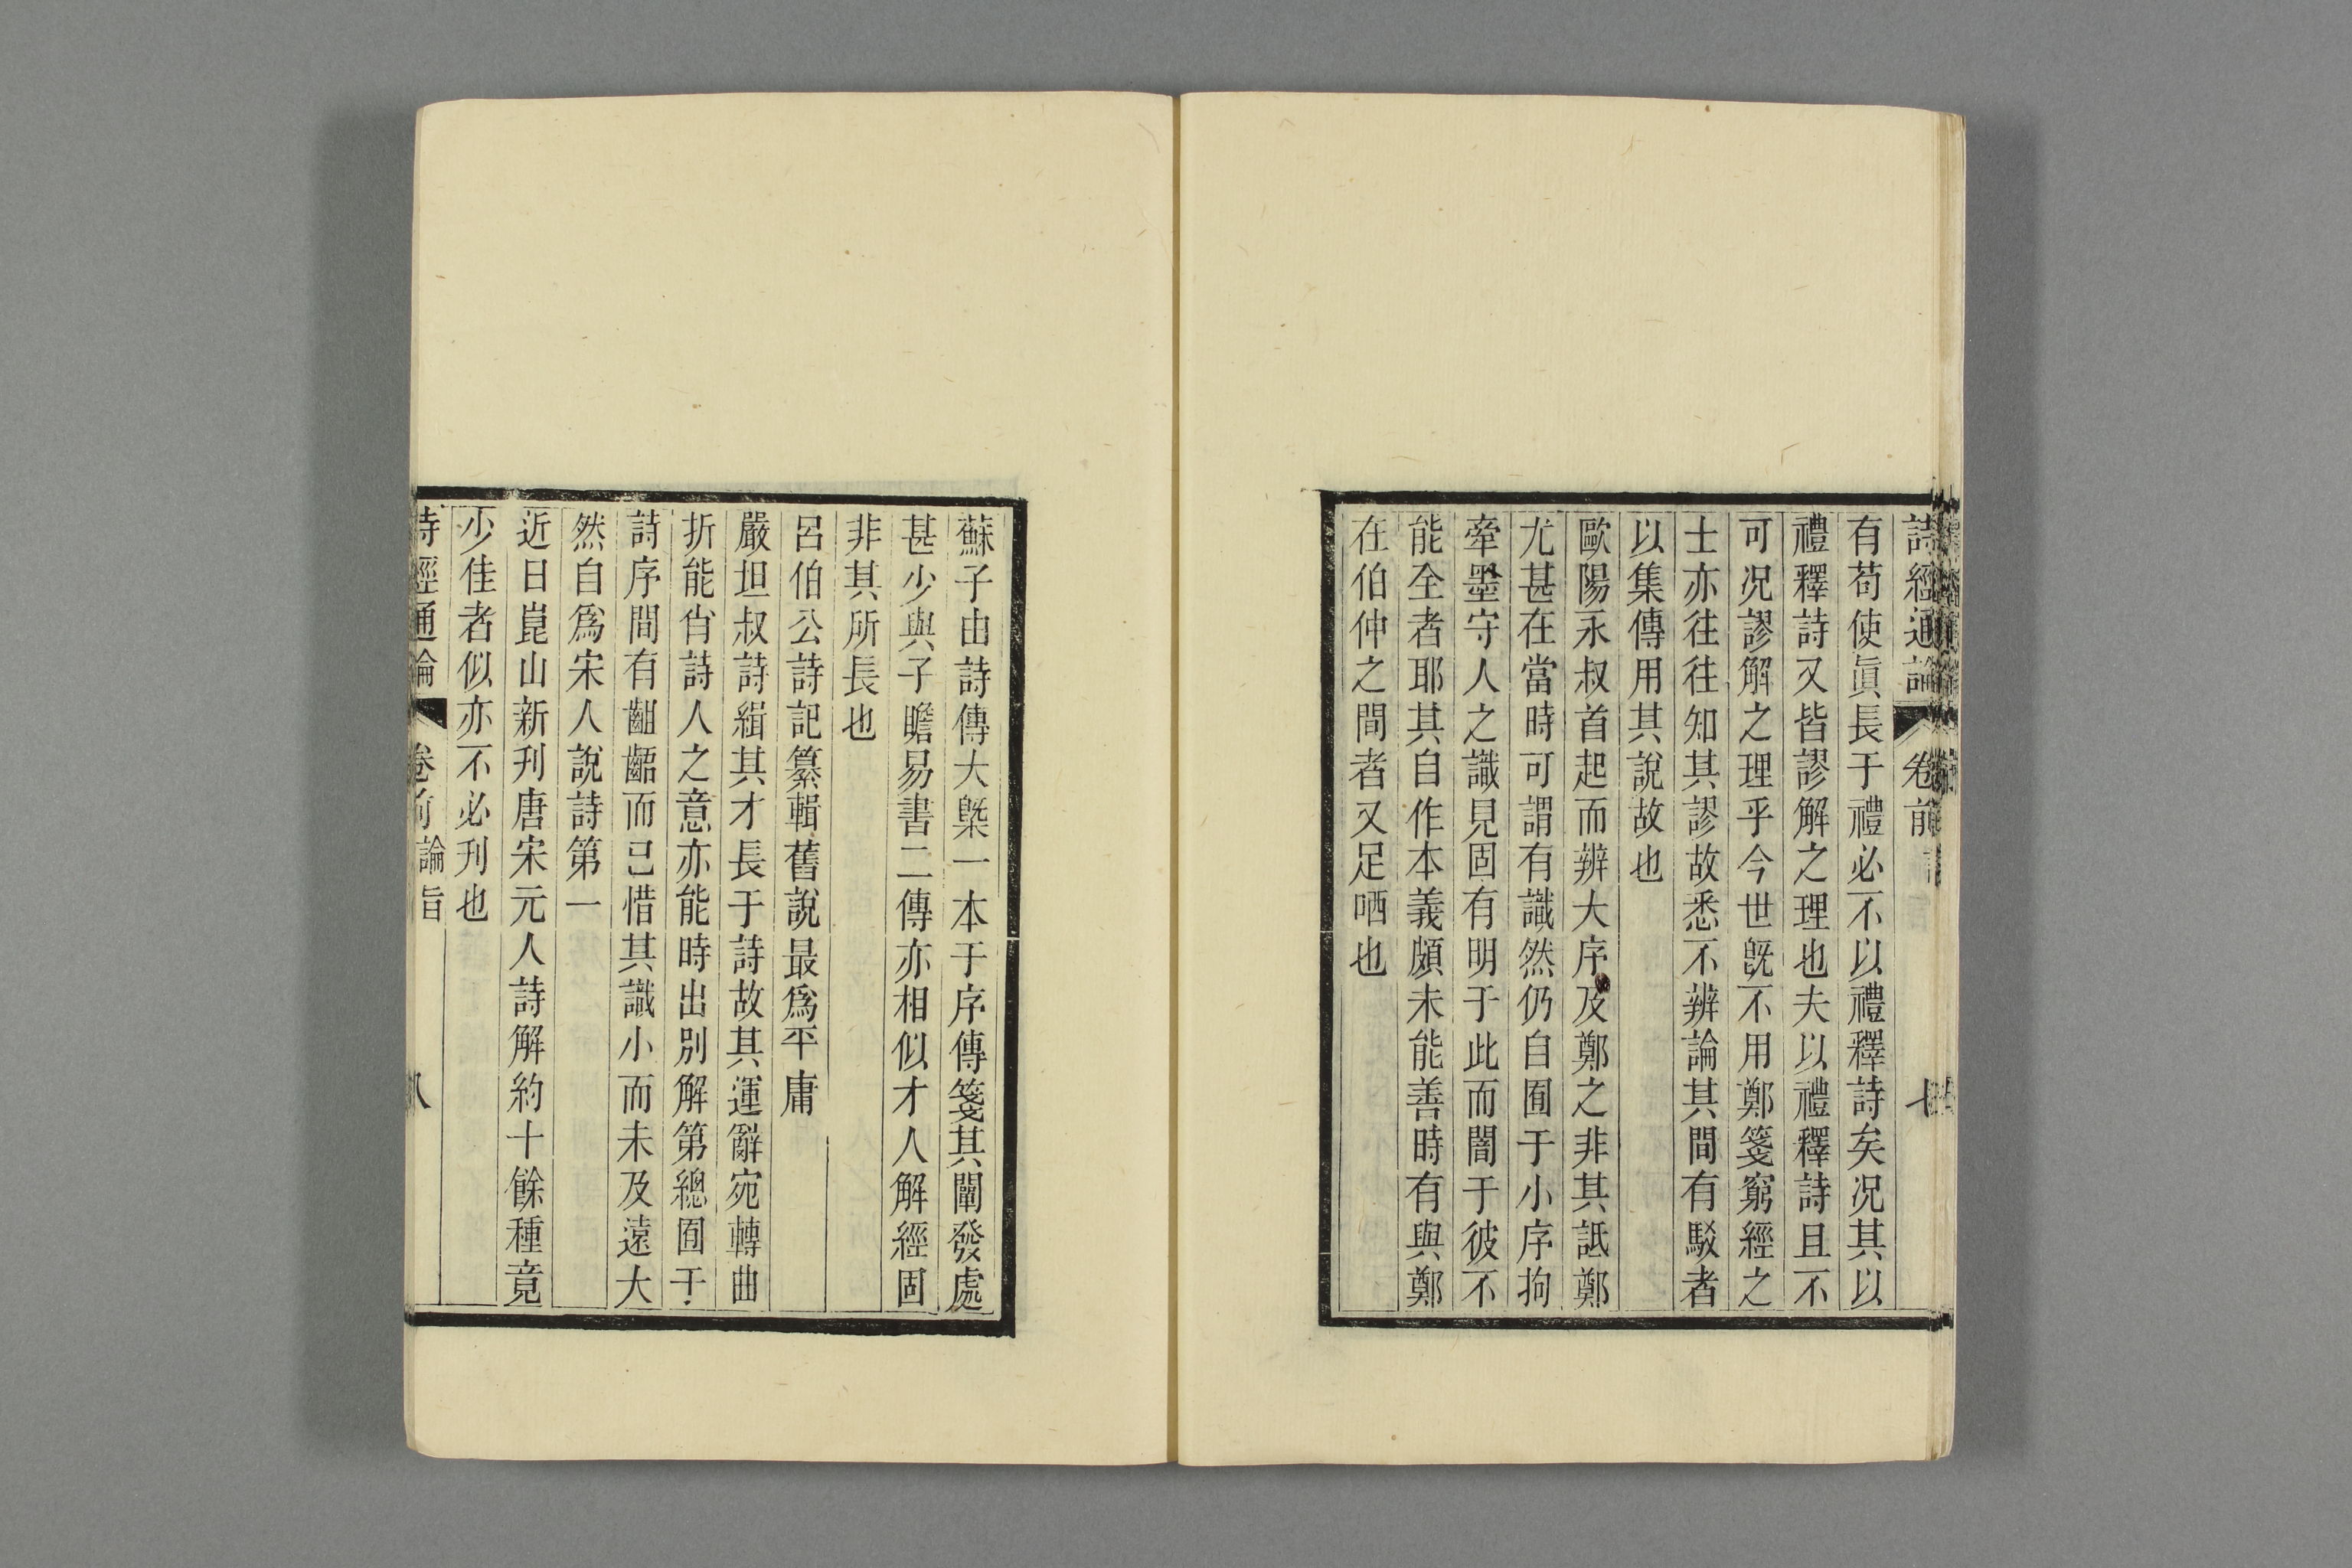 詩經通論 卷前 七
有苟使眞長于禮必不以禮釋詩矣况其以
禮釋詩又皆謬解之理也夫以禮釋詩且不
可况謬解之理乎今世旣不用鄭箋窮經之
士亦往往知其謬故悉不辨論其間有駁者
以集傳用其說故也
歐陽永叔首起而辨大序及鄭之非其詆鄭
尤甚在當時可謂有識然仍自囿于小序拘
牽墨守人之識見固有明于此而闇于彼不
能全者耶其自作本義頗未能善時有與鄭
在伯仲之間者又足哂也
蘇子由詩傳大槩一本于序傳箋其闡發處
甚少與子瞻易書二傳亦相似才人解經固
非其所長也
呂伯公詩記纂輯舊說最爲平庸
嚴坦叔詩緝其才長于詩故其運辭宛轉曲
折能肖詩人之意亦能時出別解第總囿于
詩序間有齟齬而已惜其識小而未及遠大
然自爲宋人說詩第一
近日崑山新刊唐宋元人詩解約十餘種竟
少佳者似亦不必刊也
詩經通論 卷前 論旨 八